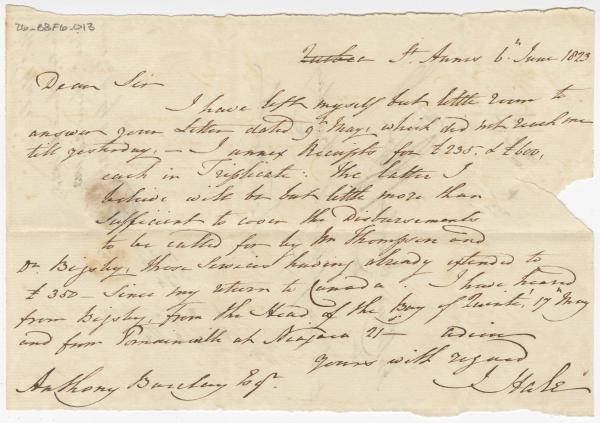 26-BBF6-013
Quebec St. Annes 6th June 1823
Dear Sir
I have left myself but little room to
answer your Letter dated 9th May, which did not reach me
till yesterday, — I annex Receipts for £235. & £600,
each in Triplicate: The latter I
believe will be but little more than
sufficient to cover the Disbursements
to be called for by Mr Thompson and
Dr Bigsby, those Services having already extended to
£350. Since my return to Canada, I have heard
from Bigsby, from the Head of the Bay of Quinté, 17th May
and from at Niagara 21— adieu
Yours with regard
J Hale
Anthony Barclay Esqr.